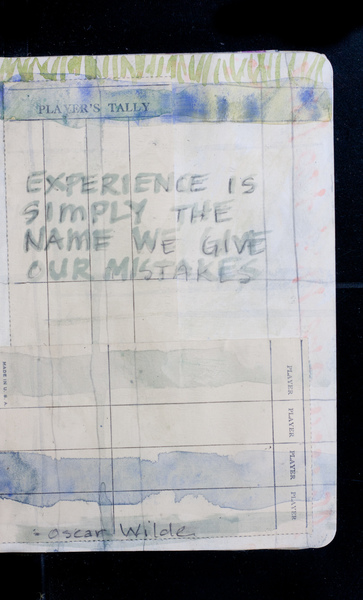 PLAYER'S TALLY
EXPERIENCE IS
SIMPLY THE
NAME WE GIVE
OUR MISTAKES
MADE IN U.S.A.
PLAYER
PLAYER
PLAYER
PLAYER
- Oscar Wilde